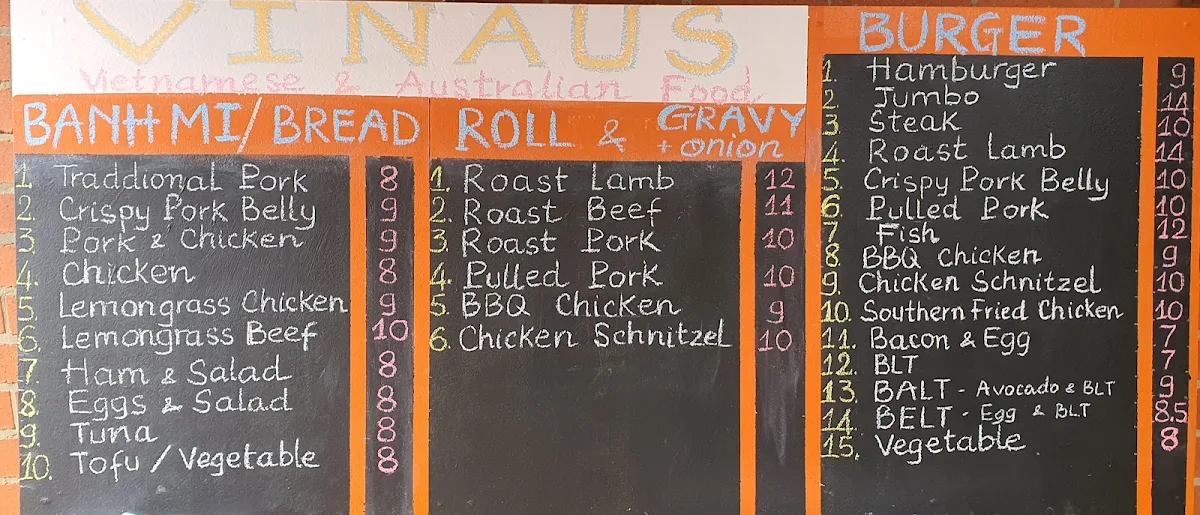 VINAUS
Vietnamese & Australian Food
BANH MI/BREAD
1. Traddional Pork 8
2. Crispy Pork Belly 9
3. Pork & Chicken 9
4. Chicken 8
5. Lemongrass Chicken 9
6. Lemongrass Beef 10
7. Ham & Salad 8
8. Eggs & Salad 8
9. Tuna 8
10. Tofu / Vegetable 8
ROLL & GRAVY
+ onion
1. Roast Lamb 12
2. Roast Beef 11
3. Roast Pork 10
4. Pulled Pork 10
5. BBQ Chicken 9
6. Chicken Schnitzel 10
BURGER
1. Hamburger 9
2. Jumbo 14
3. Steak 10
4. Roast Lamb 14
5. Crispy Pork Belly 10
6. Pulled Pork 10
7. Fish 12
8. BBQ Chicken 9
9. Chicken Schnitzel 10
10. Southern Fried Chicken 10
11. Bacon & Egg 7
12. BLT 7
13. BALT - Avocado & BLT 9
14. BELT - Egg & BLT 8.5
15. Vegetable 8